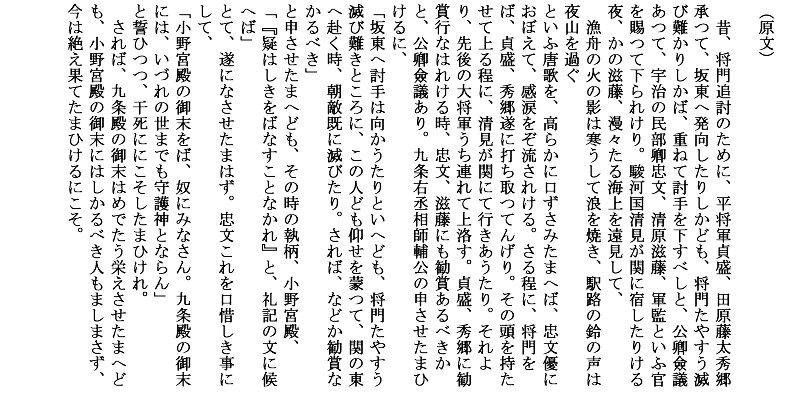 （原文）
　昔、将門追討のために、平将軍貞盛、田原藤太秀郷
承つて、坂東へ発向したりしかども、将門たやすう滅
び難かりしかば、重ねて討手を下すべしと、公卿僉議
あつて、宇治の民部卿忠文、清原滋藤、軍監といふ官
を賜つて下られけり。駿河国清見が関に宿したりける
夜、かの滋藤、漫々たる海上を遠見して、
　漁舟の火の影は寒うして浪を焼き、駅路の鈴の声は
夜山を過ぐ
といふ唐歌を、高らかに口ずさみたまへば、忠文優に
おぼえて、感涙をぞ流されける。さる程に、将門を
ば、貞盛、秀郷遂に打ち取つてんげり。その頭を持た
せて上る程に、清見が関にて行きあうたり。それよ
り、先後の大将軍うち連れて上洛す。貞盛、秀郷に勧
賞行なはれける時、忠文、滋藤にも勧賞あるべきか
と、公卿僉議あり。九条右丞相師輔公の申させたまひ
けるに、
「坂東へ討手は向かうたりといへども、将門たやすう
滅び難きところに、この人ども仰せを蒙つて、関の東
へ赴く時、朝敵既に滅びたり。されば、などか勧賞な
かるべき」
と申させたまへども、その時の執柄、小野宮殿、
「『疑はしきをばなすことなかれ』と、礼記の文に候
へば」
とて、遂になさせたまはず。忠文これを口惜しき事に
して、
「小野宮殿の御末をば、奴にみなさん。九条殿の御末
には、いづれの世までも守護神とならん」
と誓ひつつ、干死ににこそしたまひけれ。
　されば、九条殿の御末はめでたう栄えさせたまへど
も、小野宮殿の御末にはしかるべき人もましまさず、
今は絶え果てたまひけるにこそ。